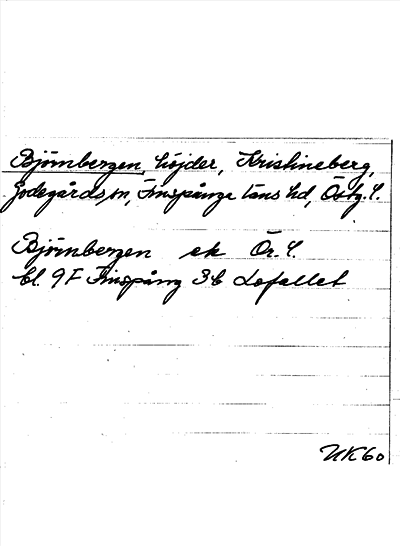 Björnbergen, höjder, Kristineberg,
Godegårds sn, Finspånga läns hd, Östg. l.
Björnbergen ek Ör. l.
bl. 9F Finspång 3b Lofallet
UK60